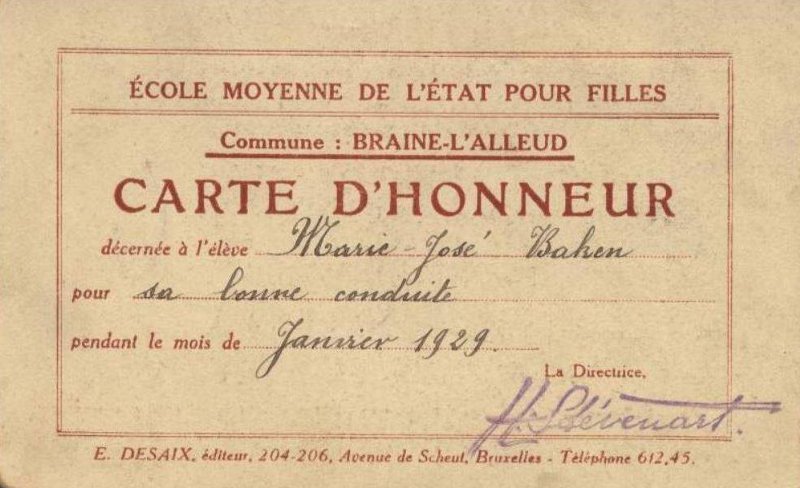 ÉCOLE MOYENNE DE L'ÉTAT POUR FILLES
Commune : BRAINE-L'ALLEUD
CARTE D'HONNEUR
décernée à l'élève Marie-José Bahen
pour sa bonne conduite
pendant le mois de Janvier 1929.
La Directrice,
E. DESAIX, éditeur, 204-206, Avenue de Scheut, Bruxelles - Téléphone 612,45.